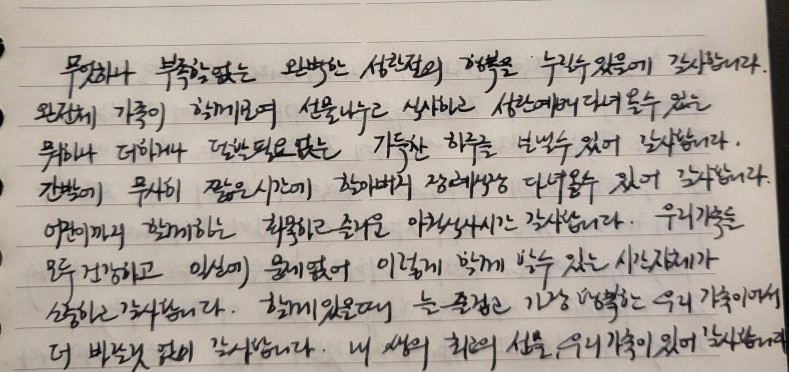 무엇하나 부족함없는 완벽한 성탄절의 행복을 누릴수있음에 감사합니다.
완전체 가족이 함께모여 선물나누고 식사하고 성탄예배다녀올수 있는
뭐하나 더하거나 덜할필요없는 가득찬 하루를 보낼수 있어 감사합니다.
간밤에 무사히 짧은시간에 할아버지 장례식장 다녀올수 있어 감사합니다.
어린이까지 함께하는 화목하고즐거운 아침식사시간 감사합니다. 우리가족들
모두 건강하고 일상에 문제없어 이렇게 함께 할수 있는 시간자체가
소중하고감사합니다. 함께있을때 늘즐겁고 가장 행복한 우리 가족이어서
더 바랄것 없이 감사합니다. 내 생의 최고의 선물, 우리가족이 있어 감사합니다